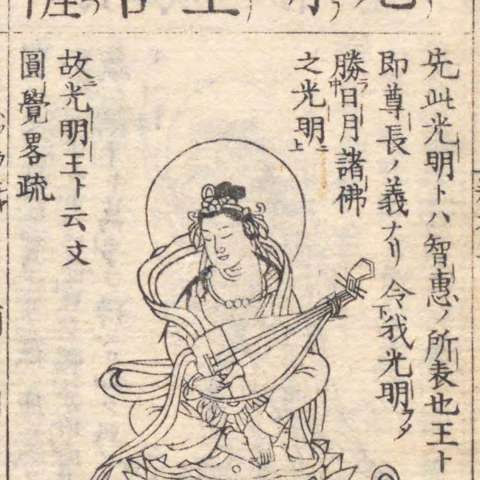 先此光明トハ智惠ノ所表也王ト
即尊長ノ義ナリ令我光明
勝日月諸佛
之光明
故光明王ト云文
圓覺畧疏